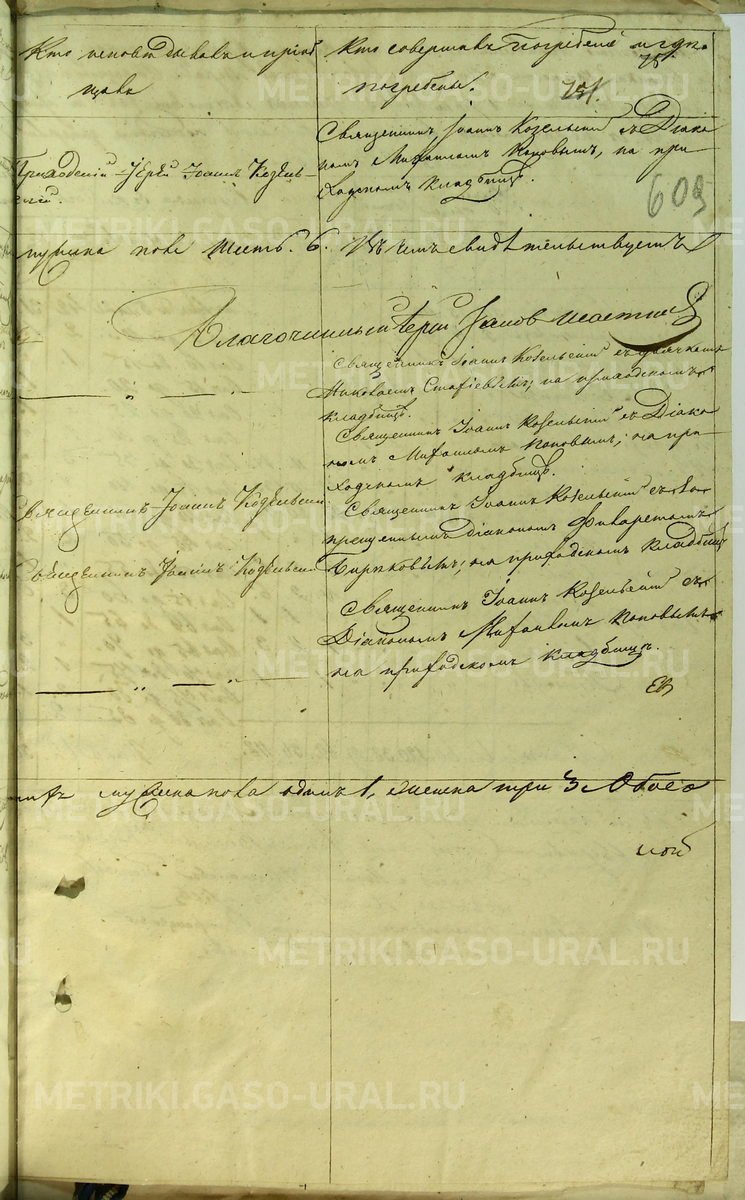 Кто исповѣдывалъ и приоб
щалъ
Кто совершалъ погребенiе и гдѣ
погребены.
75.
751.
609
Приходскiй Iерей Iоаннъ Козель-
скiй.
Священникъ Iоаннъ Козельскiй съ Дiако
номъ Михаиломъ Поповымъ, на при-
ходскомъ кладбищѣ.
мужеска пола шесть. 6. Въ чемъ свидѣтельствуетъ
Благочинный Iерей
Священникъ Iоаннъ Козельскiй съ дьячкомъ
Николаемъ на приходскомъ
кладбищѣ.
Священникъ Iоаннъ Козельскiй съ Дiако
номъ Михаиломъ Поповымъ, на при-
ходскомъ кладбищѣ.
Священникъ Iоаннъ Козельскiй
Священникъ Iоаннъ Козельскiй съ за-
прещеннымъ дiакономъ Филаретомъ
Бирюковымъ; на приходскомъ кладбищѣ
Священникъ Iоаннъ Козельскiй
Священникъ Iоаннъ Козельскiй съ
Дiакономъ Михаиломъ Поповымъ
на приходскомъ кладбищѣ.
мужеска пола одинъ 1, женска три 3 Обоего
METRIKI.GASO-URAL.RU